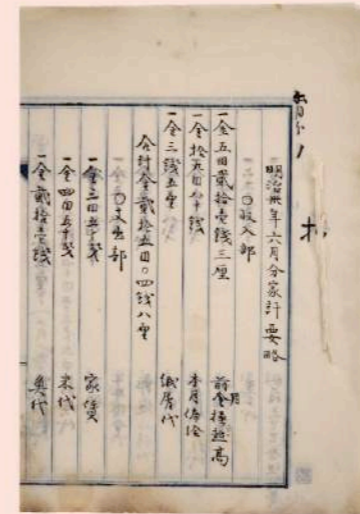 六月分
明治卅年六月分家計要略
〇収入部
一金五円貳拾壱銭三厘 前月金繰越高
一金拾九円八十銭 本月俸給
一金三銭五厘 紙屑代
合計金貳拾五円〇四銭八厘
〇支出部
一金三円五十銭 家賃
一金四円五十銭 米代
一金貳拾壱銭 魚代